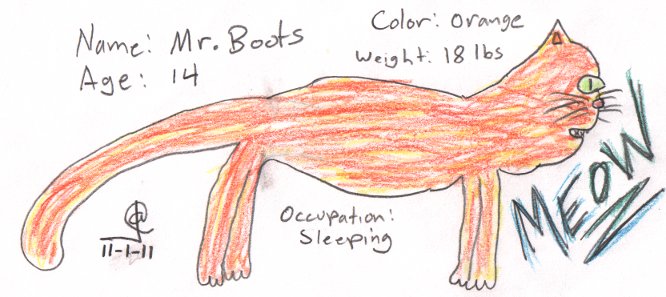 Name: Mr. Boots
Age: 14
Color: Orange
Weight: 18 lbs
MEOW
Occupation:
Sleeping
11-1-11